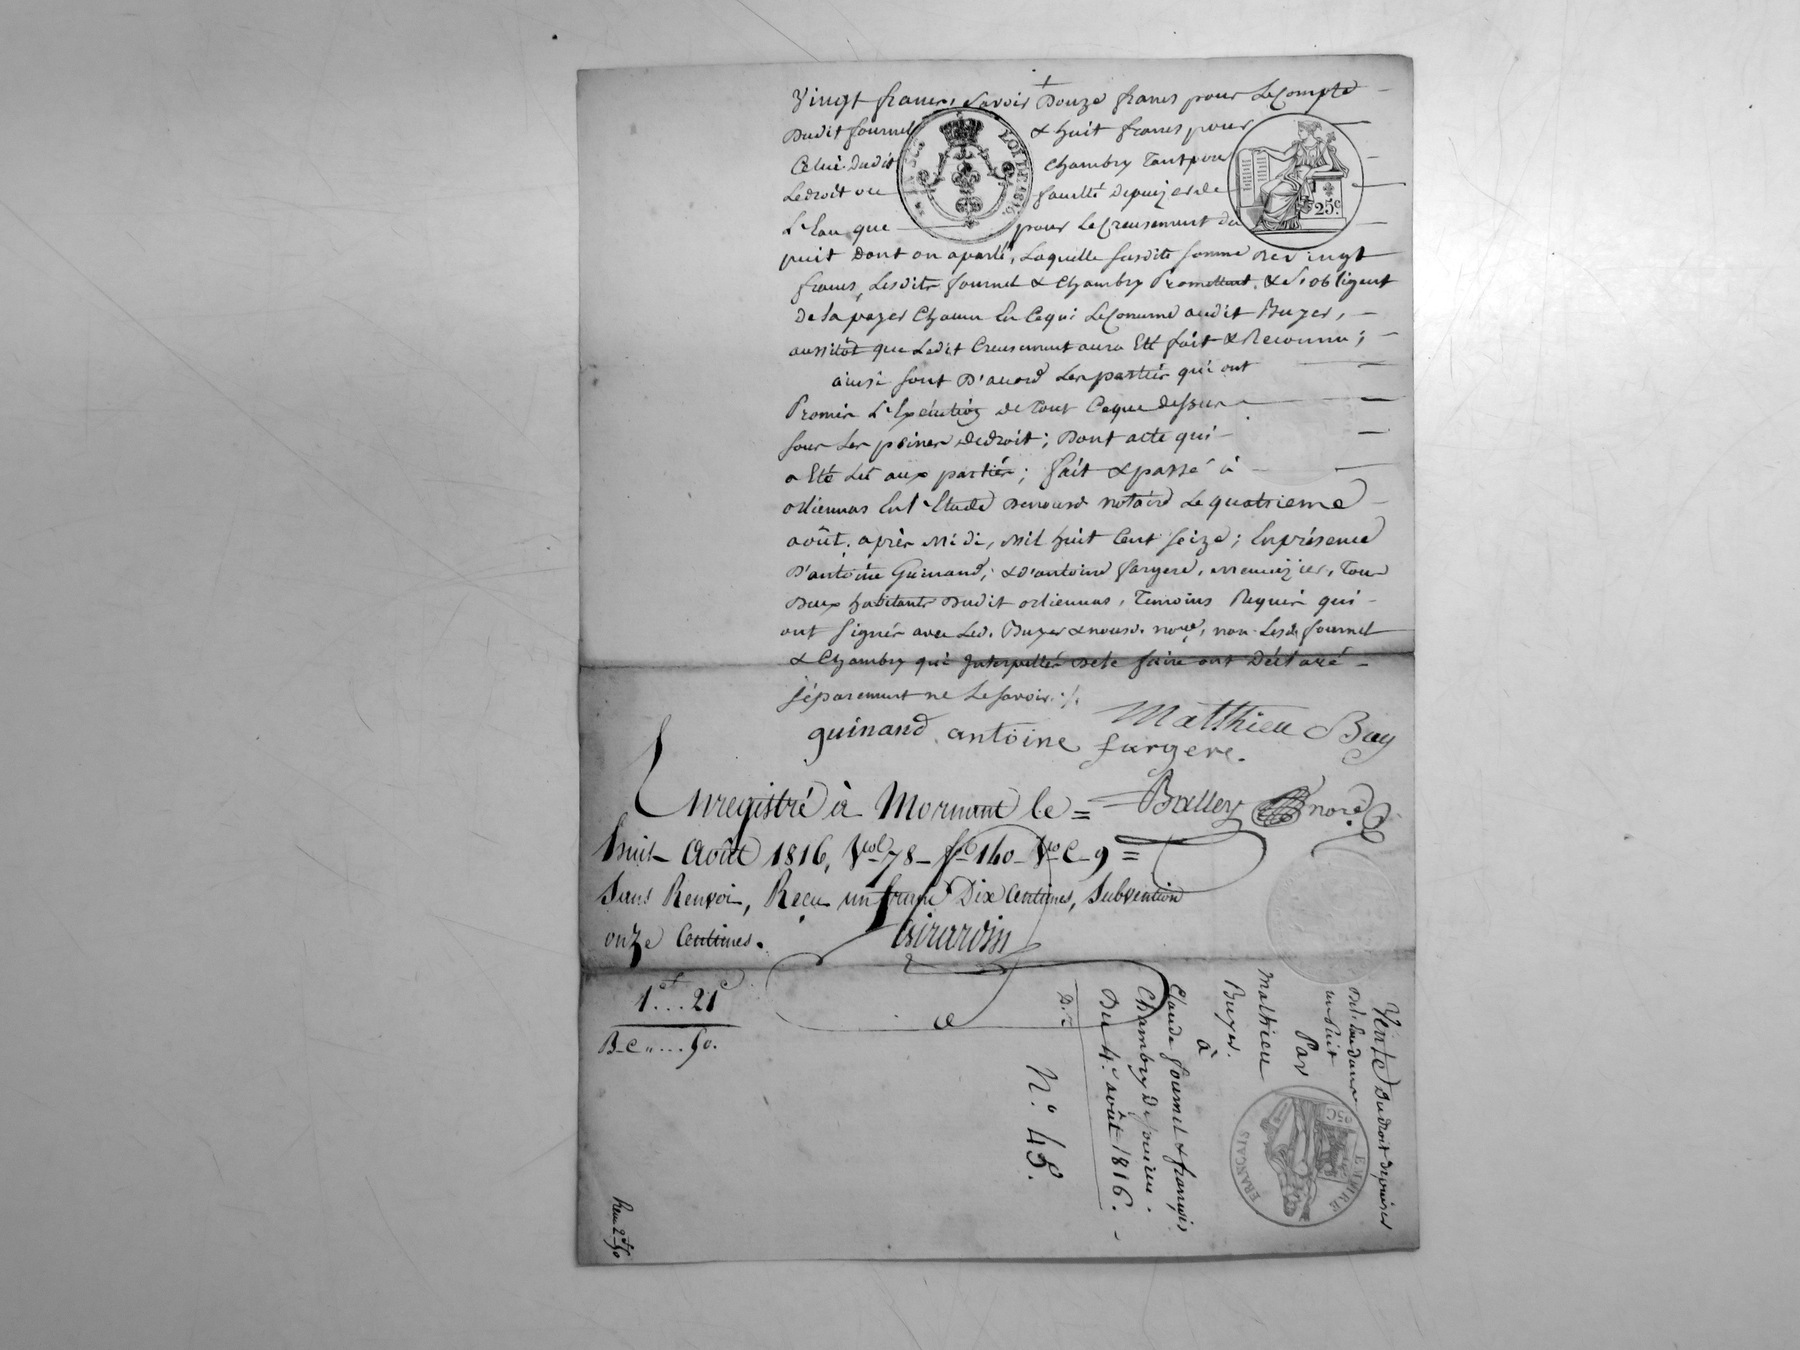 Vingt francs, Savoir Douze francs pour Le Compte
Dudit fournel & huit francs pour
Celui dudit Chambry Tant pour
Le droit ou faculté de puizer de
L'Eau que pour Le Creusement du
puit Dont on a parlé, Laquelle susdite somme de vingt
francs, Lesdits fournel & Chambry Promettent & s'obligent
de la payer Chacun En Ce qui Le Concerne audit Buyer,
aussitôt que Ledit Creusement aura Eté fait & Reconnu;
ainsi sont D'acord Les parties qui ont
Promis L'Exécution de Tout Ce que dessus
sous Les peines de droit; Dont acte qui
a Eté Lu aux parties; fait & passé à
orliennas En l'Etude de nousd. notaire Le quatrieme
août, après Midi, Mil huit Cent Seize; En présence
D'antoine Guinand, & D'antoine fargere, Menuizier, Tous
Deux habitants Dudit orliennas, Temoins Requis qui
ont Signés avec Led. Buyer & nousd. nore, non Lesds. fournel
& Chambry qui Interpellés de le faire ont Déclaré
séparement ne Le savoir ./.
Matthieu Buy
guinand antoine fargere.
LOI DE 1816
25c
Enregistré à Mornant le
nore
huit Août 1816, vol 78 fo 140 vo C 9
Sans Renvoi, Reçu un franc Dix Centimes, Subvention
onze Centimes.
Girardin
1f...21c
B. C.....50.
Vente du droit de puiser
de L'Eau dans
un Puit
Par
Mathieu
Buyer.
à
Claude fournel & françois
Chambry de
Du 4. août 1816.
N.o 45.
EMPIRE
FRANÇAIS